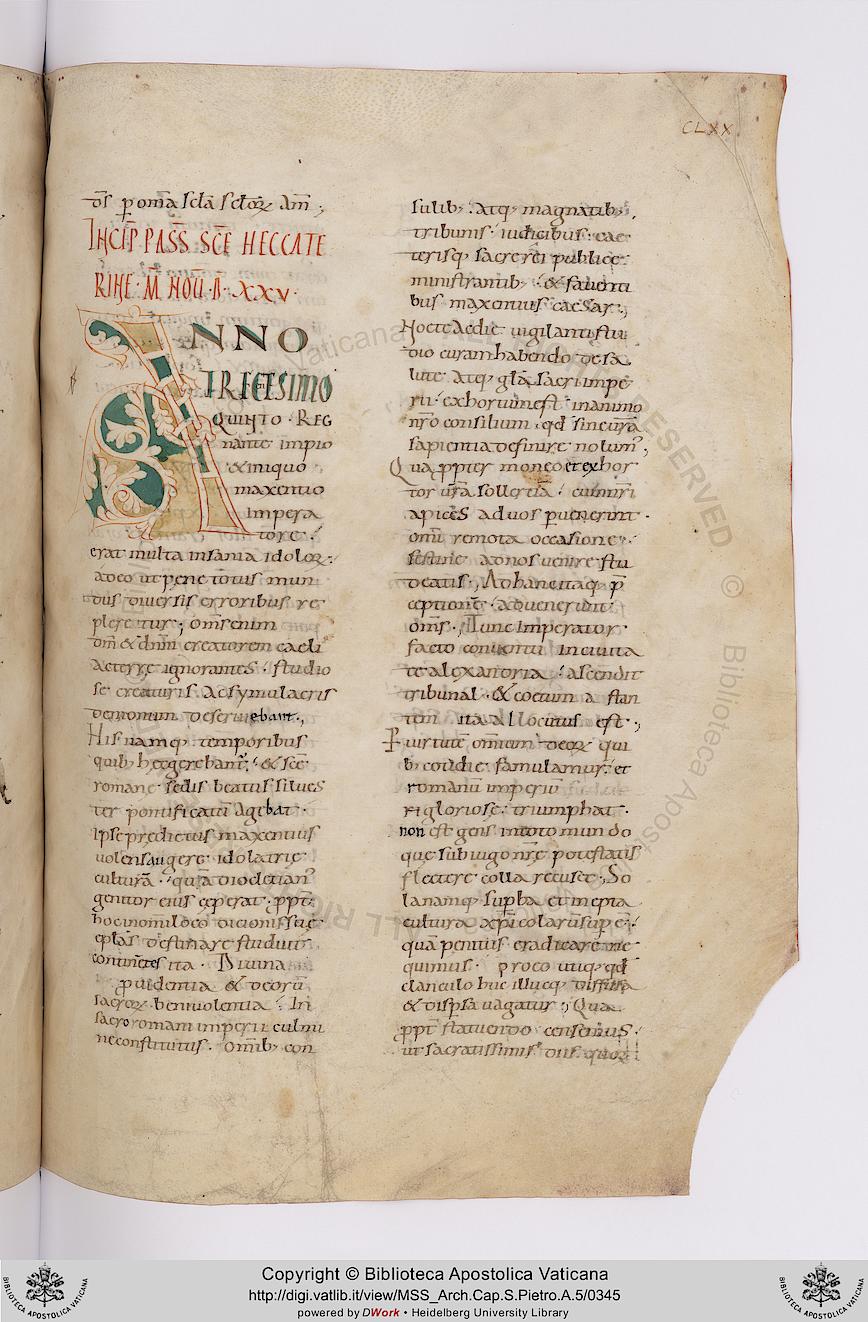 CLXX
d̄s p̲ om̄a sc̄la sc̄lorꝝ Am̄;
INCIP̄ PASS̄ SC̄E HECCATE
RINE · M̄ NOV̄ · D̄ · XXV ·
ANNO
TRECESIMO
QUINTO · REG
nante impio
& iniquo
maxentio
impera
tore ·
erat multa insania idolorꝝ
adeo ut pene totus mun
dus diuersis erroribus re
pleretur; om̄s enim
dm̄ & dn̄m creatorem caeli
ac terre ignorantes · studio
se creaturis ac symulacris
demonum deseruiebant;
His namq; temporibus
quib; hec gerebant᷑ · & sc̄e
romane sedis beatus silues
ter pontificatū agebat ·
ipse predictus maxentius
uolens augere idolatrie
culturā · quā diocletian᷒
genitor eius ceperat · pp̄t
hoc in om̄i loco dicionis sue
ep̄las destinare studuit
continentes ita · Diuina
prouidentia & deorū
sacrorꝝ beniuolentia · In
sacro romani imperii culmi
ne constitutus · omib; con
sulib; · atq; magnatib;,
tribunis · iudicibus · cae
terisq; sacre rei publice
ministrantib; · & faventi
bus maxentius caesar;
Nocte ac die uigilanti stu
dio curam habendo de sa
lute atq; gl̄a sacri impe
rii · exhortum est in animo
nr̄o consilium · qd̄ sincera
sapientia definire nolum᷒;
Quapp̲ter moneo et exhor
tor ur̄a sollertia · cum nr̄i
apices ad uos p̲uenerint ·
omi remota occasione ·
festine ad nos uenire stu
deatis; Ad hanc itaq; p̄
ceptionē · aduenerunt
om̄s · Tunc imperator
facto conuentu in ciuita
te alexandria · ascendit
tribunal · & coetum a stan
tem ita allocutus est;
P̲ uirtutē omnium deorꝝ qui
b; cotidie famulamur · et
romanū imperiū
gloriose triumphat ·
non est gens in toto mundo
que sub iugo nr̄e potestatis
flectere colla recuset; So
la namq; sup̲ba et inepta
cultura xp̄icolarū sup̲e ·
quā penitus eradicare ne
quimus · pro eo utiq; qd̄
clanculo huc illucq; diffusa
& disp̲sa uagatur; Qua
pp̲t statuendo censemus ·
ut sacratissimis diis
Copyright © Biblioteca Apostolica Vaticana
http://digi.vatlib.it/view/MSS_Arch.Cap.S.Pietro.A.5/0345
powered by DWork • Heidelberg University Library